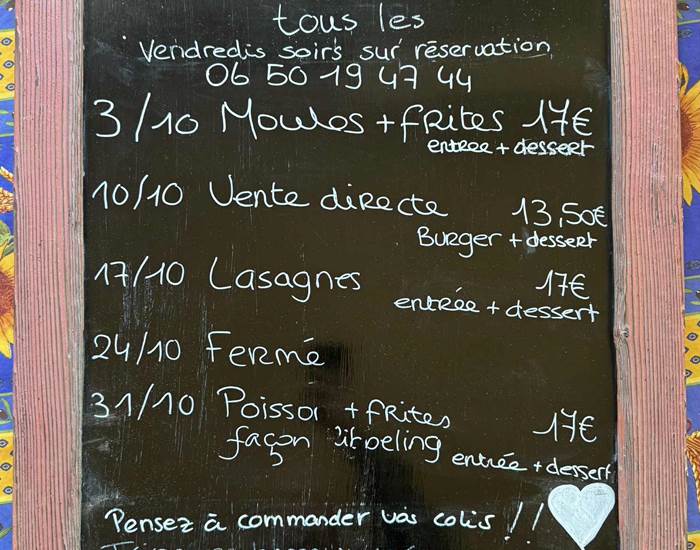 tous les
Vendredis soirs sur réservation
06 50 19 47 44
3/10 Moules + frites 17€
entrée + dessert
10/10 Vente directe 13,50€
Burger + dessert
17/10 Lasagnes 17€
entrée + dessert
24/10 Fermé
31/10 Poisson + frites 17€
façon entrée + dessert
Pensez à commander vos colis !!